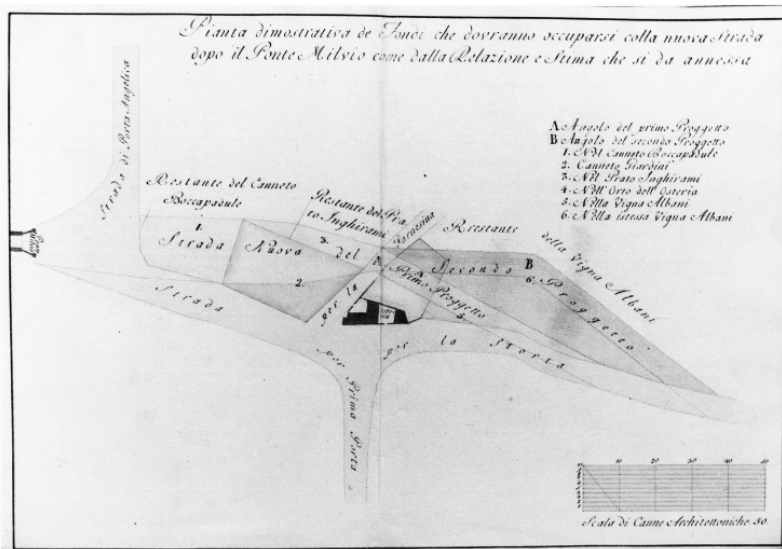 Pianta dimostrativa de Fondi che dovranno occuparsi colla nuova Strada
dopo il Ponte Milvio come dalla Relazione e Stima che si da annessa
A Angolo del primo Proggetto
B Angolo del secondo Proggetto
1. Nel Canneto Boccapadule
2. Canneto Giardini
3. Nel Prato Inghirami
4. Nell' Orto dell' Osteria
5. Nella Vigna Albani
6. Nella istessa Vigna Albani
Strada di Porta Angelica
Restante del Canneto
Boccapadule
Restante del Pra
to Inghirami
Farnesina
Restante
della Vigna Albani
1.
Strada Nuova del
3.
Secondo
B
6.
Proggetto
2.
Primo Proggetto
5.
Strada
per la
per la Storta
per Prima Porta
10 20 30 40 50
Scala di Canne Architettoniche 50.